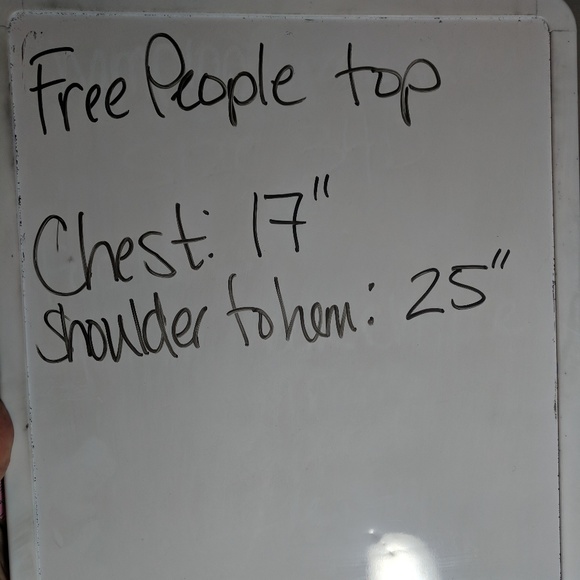 Free People top
Chest: 17"
shoulder to hem: 25"